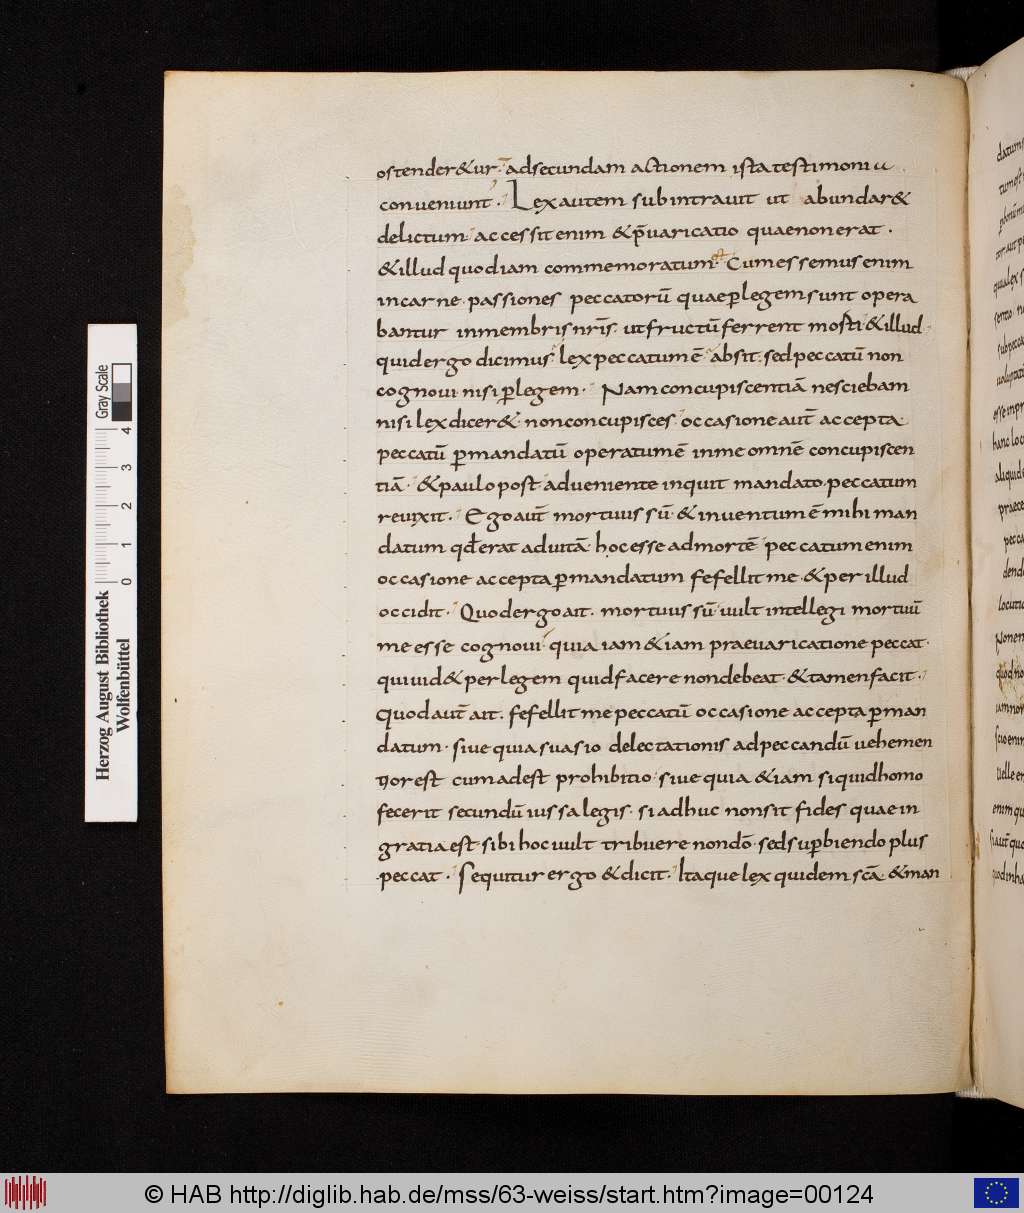 ostender&ur· ad secundam actionem ista testimonia
conveniunt· Lex autem subintrauit ut abundar&
delictum· accessit enim & p̄uaricatio quae non erat·
& illud quod iam commemoratum ē· Cum essemus enim
in carne· passiones peccatorū quae p̲ legem sunt opera
bantur in membris nr̄is· ut fructū ferrent morti· & illud·
quid ergo dicimus· lex peccatum ē· absit· sed peccatū non
cognoui nisi p̲ legem· Nam concupiscentiā nesciebam
nisi lex dicer&· non concupisces· occasione aut̄ accepta
peccatū p̲ mandatū operatum ē in me omnē concupiscen
tiā· & paulo post· adueniente inquit mandato· peccatum
reuixit· Ego aut̄ mortuus sū· & inuentum ē mihi man
datum qđ erat ad uitā· hoc esse ad mortē· peccatum enim
occasione accepta p̲ mandatum fefellit me & per illud
occidit· Quod ergo ait· mortuus sū· uult intellegi mortuū
me esse cognoui· quia iam &iam praeuaricatione peccat·
qui uid& per legem quid facere non debeat· & tamen facit·
Quod aut̄ ait· fefellit me peccatū occasione accepta p̲ man
datum· siue quia suasio delectationis ad peccandū uehemen
tior est cum adest prohibitio· siue quia &iam si quid homo
fecerit secundū iussa legis· si adhuc non sit fides quae in
gratia est· sibi hoc uult tribuere non dō· sed sup̲biendo plus
peccat· Sequitur ergo & dicit· Itaque lex quidem sc̄a & man
datum
Herzog August Bibliothek
Wolfenbüttel
0 1 2 3 4
Gray Scale
© HAB http://diglib.hab.de/mss/63-weiss/start.htm?image=00124